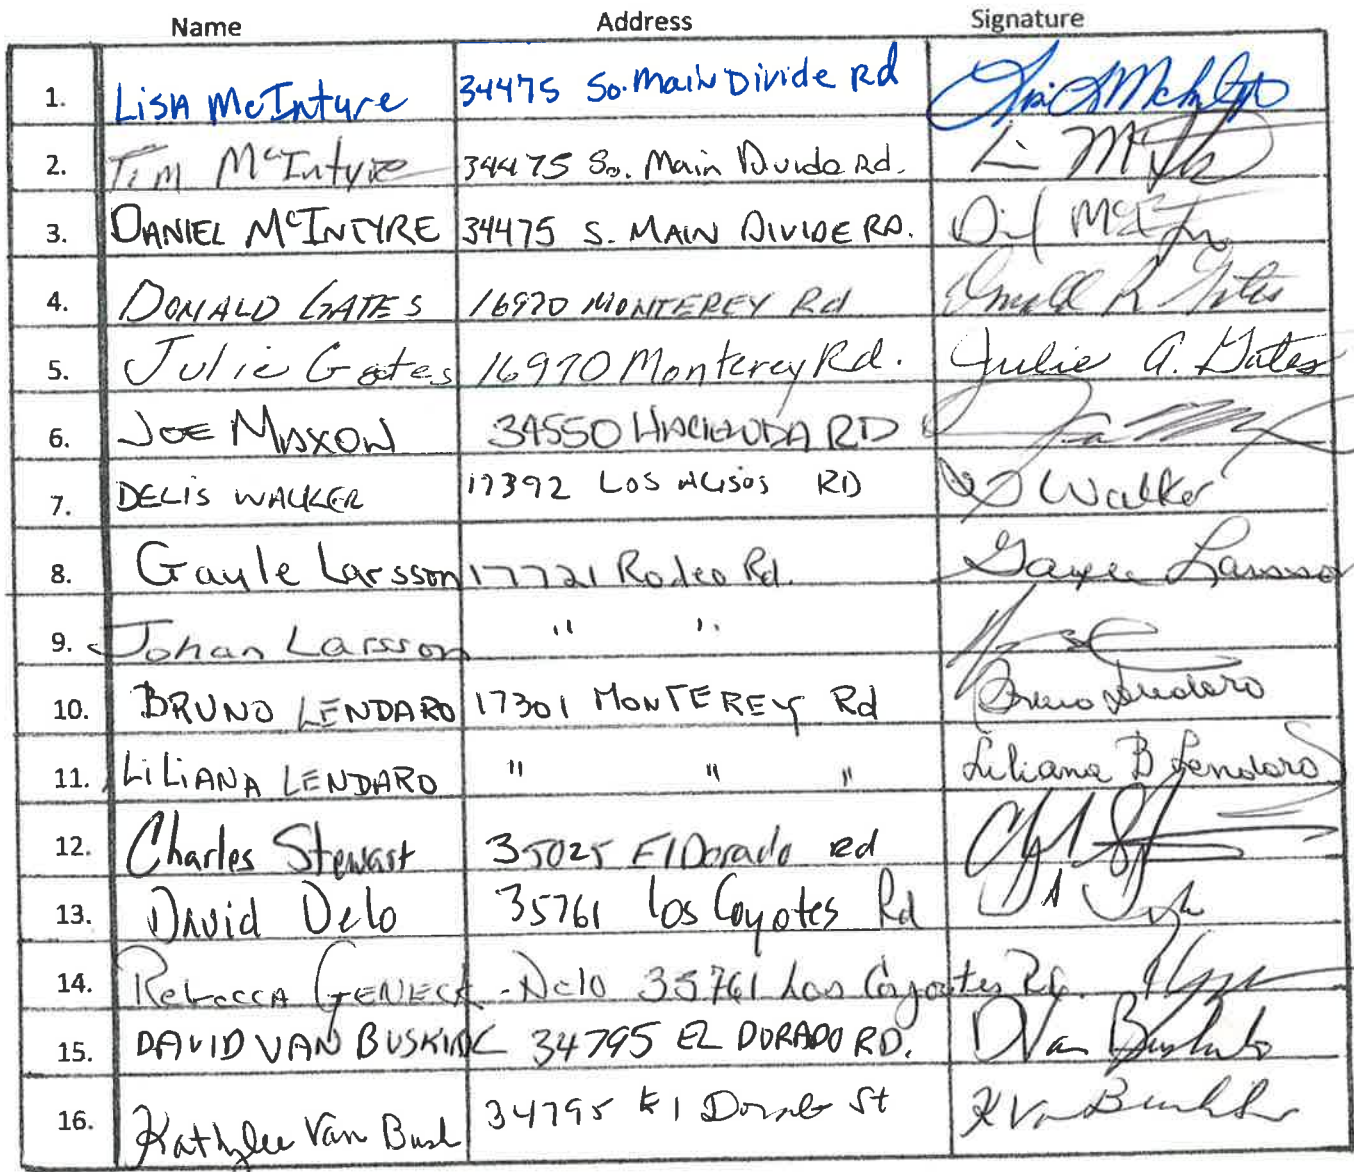 Name Address Signature
1. Lisa McIntyre 34475 So. Main Divide Rd
2. Tim McIntyre 34475 So. Main Divide Rd.
3. DANIEL McINTYRE 34475 S. MAIN DIVIDE RD.
4. DONALD GATES 16970 MONTEREY Rd Donald R Gates
5. Julie Gates 16970 Monterey Rd. Julie A. Gates
6. JOE MAXON 34550 HACIENDA RD
7. DELIS WALKER 17392 LOS ALISOS RD Walker
8. Gayle Larsson 17721 Rodeo Rd. Gayle Larsson
9. Johan Larsson " "
10. BRUNO LENDARO 17301 MONTEREY Rd Bruno Lendaro
11. LILIANA LENDARO " " " Liliana B Lendaro
12. Charles Stewart 35025 El Dorado Rd
13. David Delo 35761 Los Coyotes Rd
14. Rebecca -Delo 35761 Los Coyotes Rd.
15. DAVID VAN BUSKIRK 34795 EL DORADO RD. D Van Buskirk
16. Kathylee Van Busk 34795 El Dorado St K Van